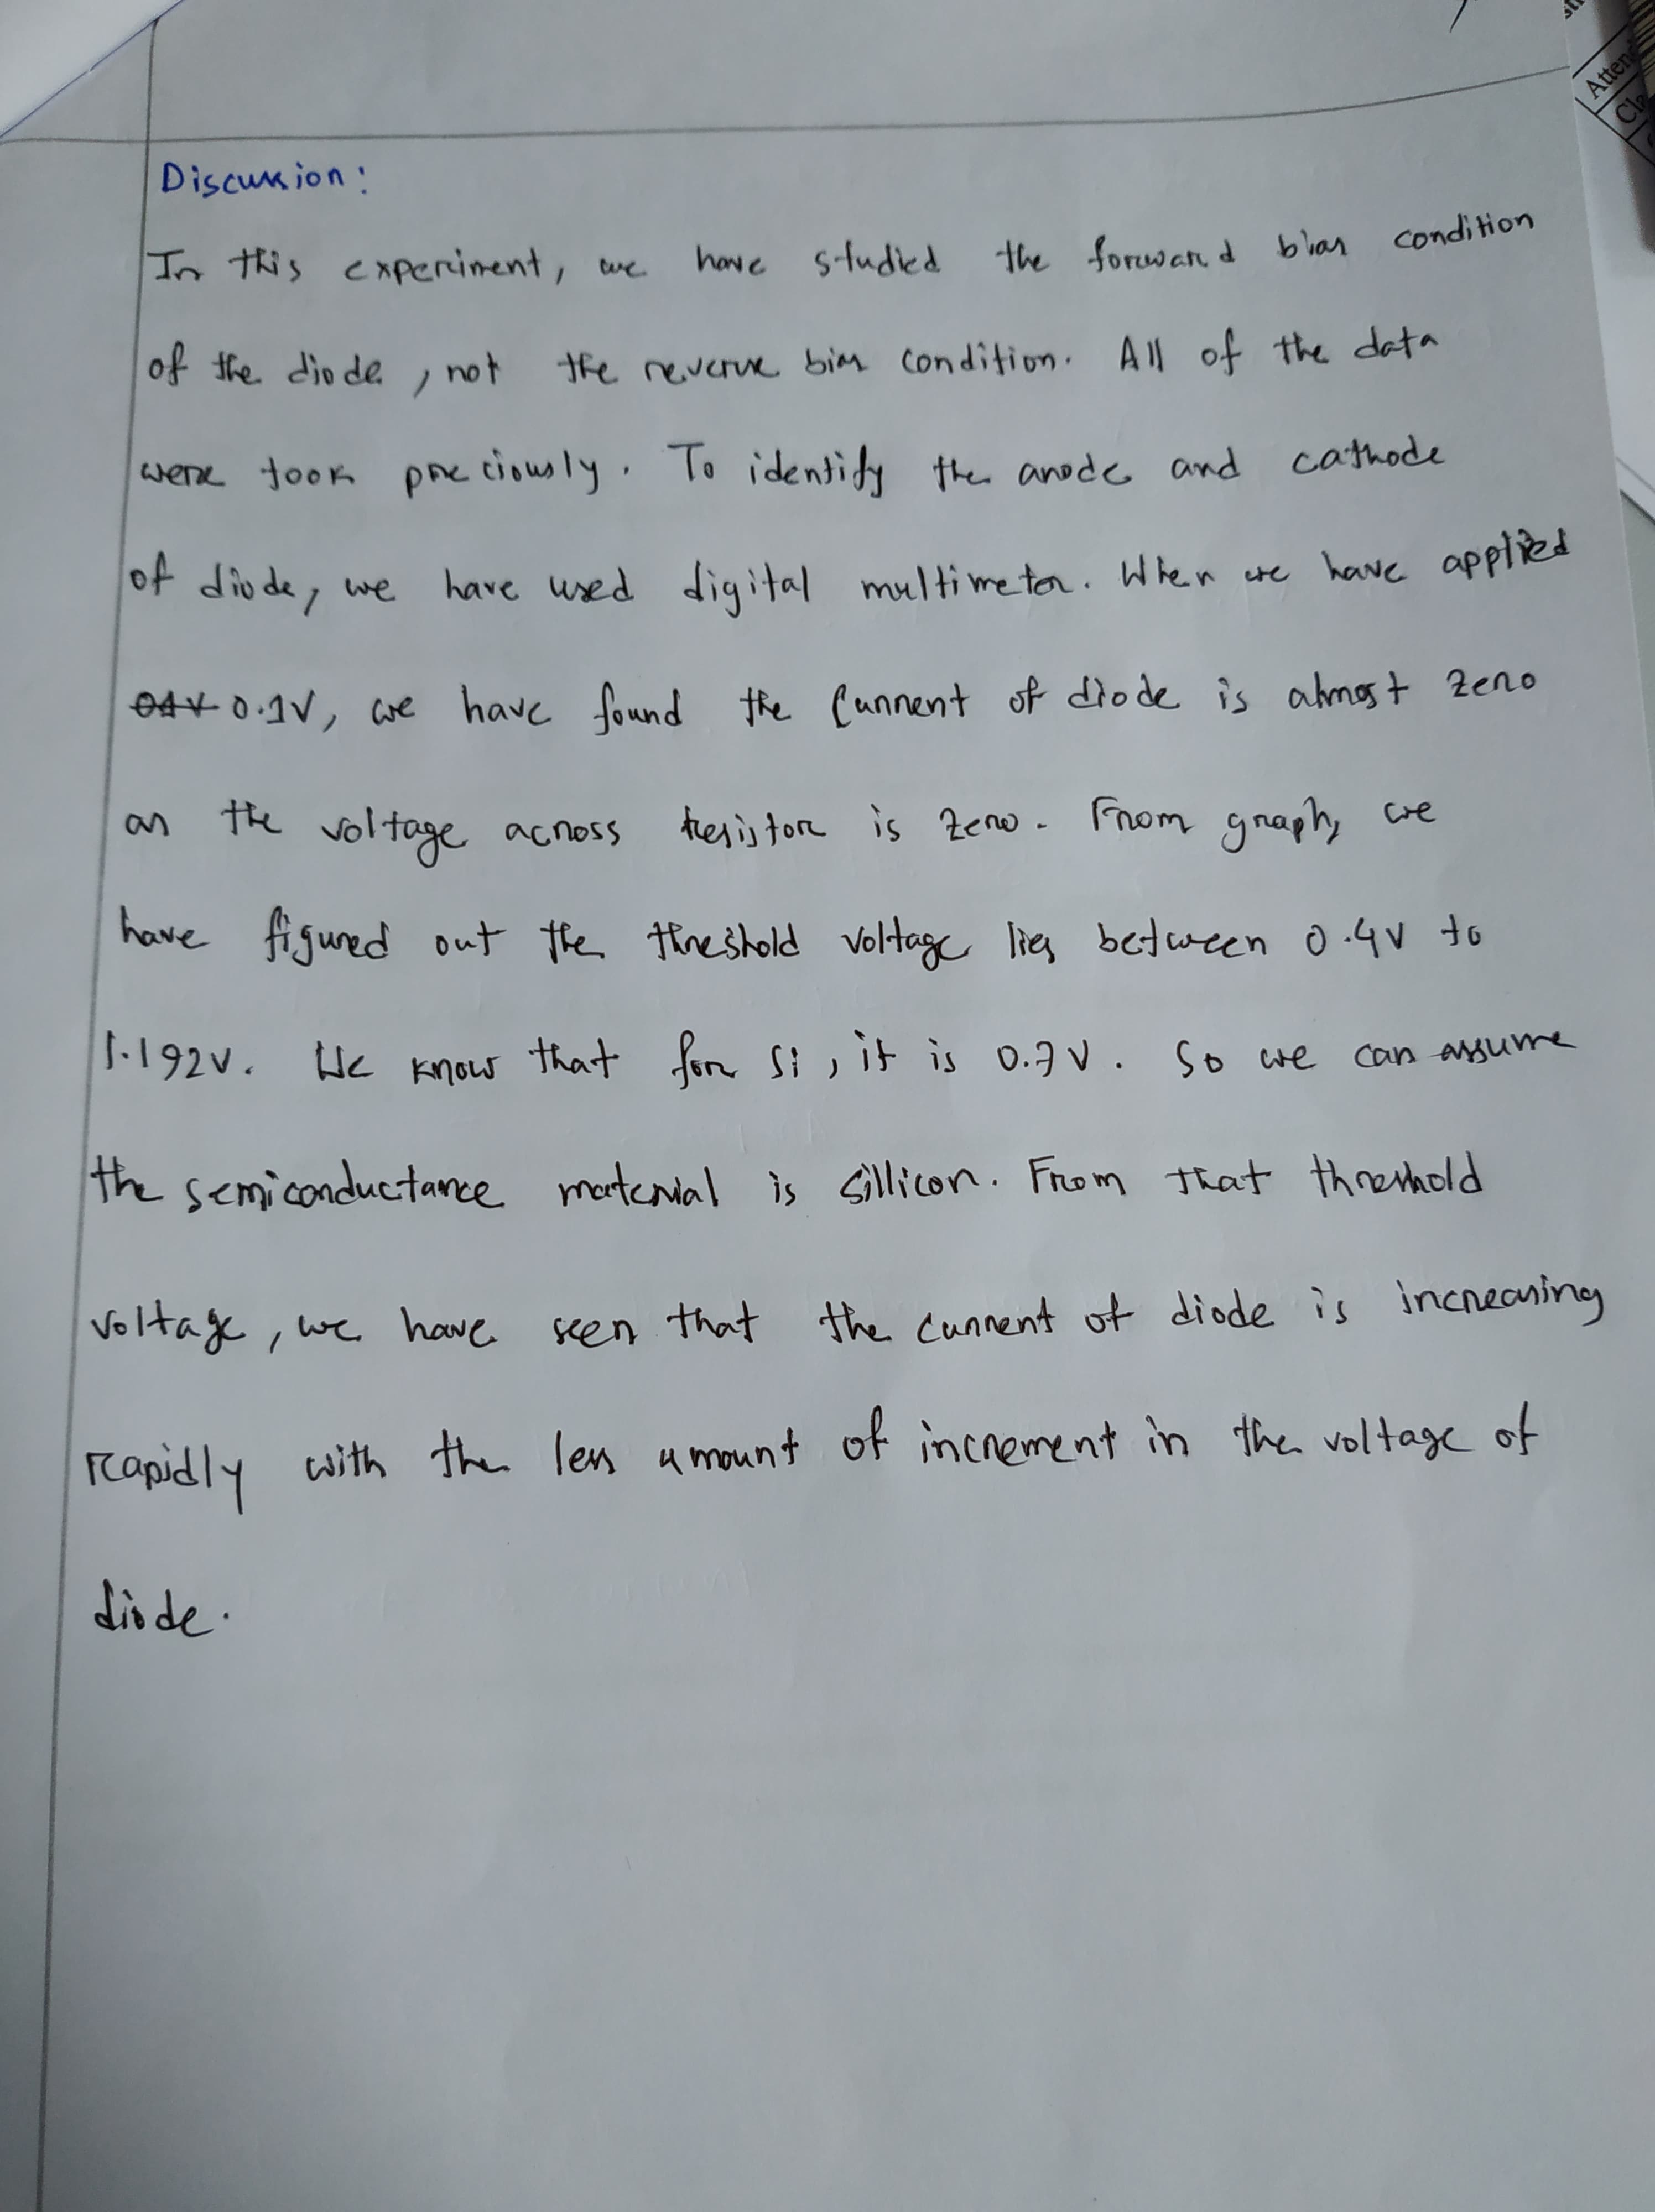 Discussion:
In this experiment, we have studied the forward bias condition
of the diode, not the reverse bias condition. All of the data
were took preciously. To identify the anode and cathode
of diode, we have used digital multimeter. When we have applied
0.1V, we have found the current of diode is almost zero
as the voltage across resistor is zero. From graph, we
have figured out the threshold voltage lies between 0.4V to
1.192V. We know that for Si, it is 0.7V. So we can assume
the semiconductance material is sillicon. From that threshold
voltage, we have seen that the current of diode is increasing
rapidly with the less amount of increment in the voltage of
diode.
Atten